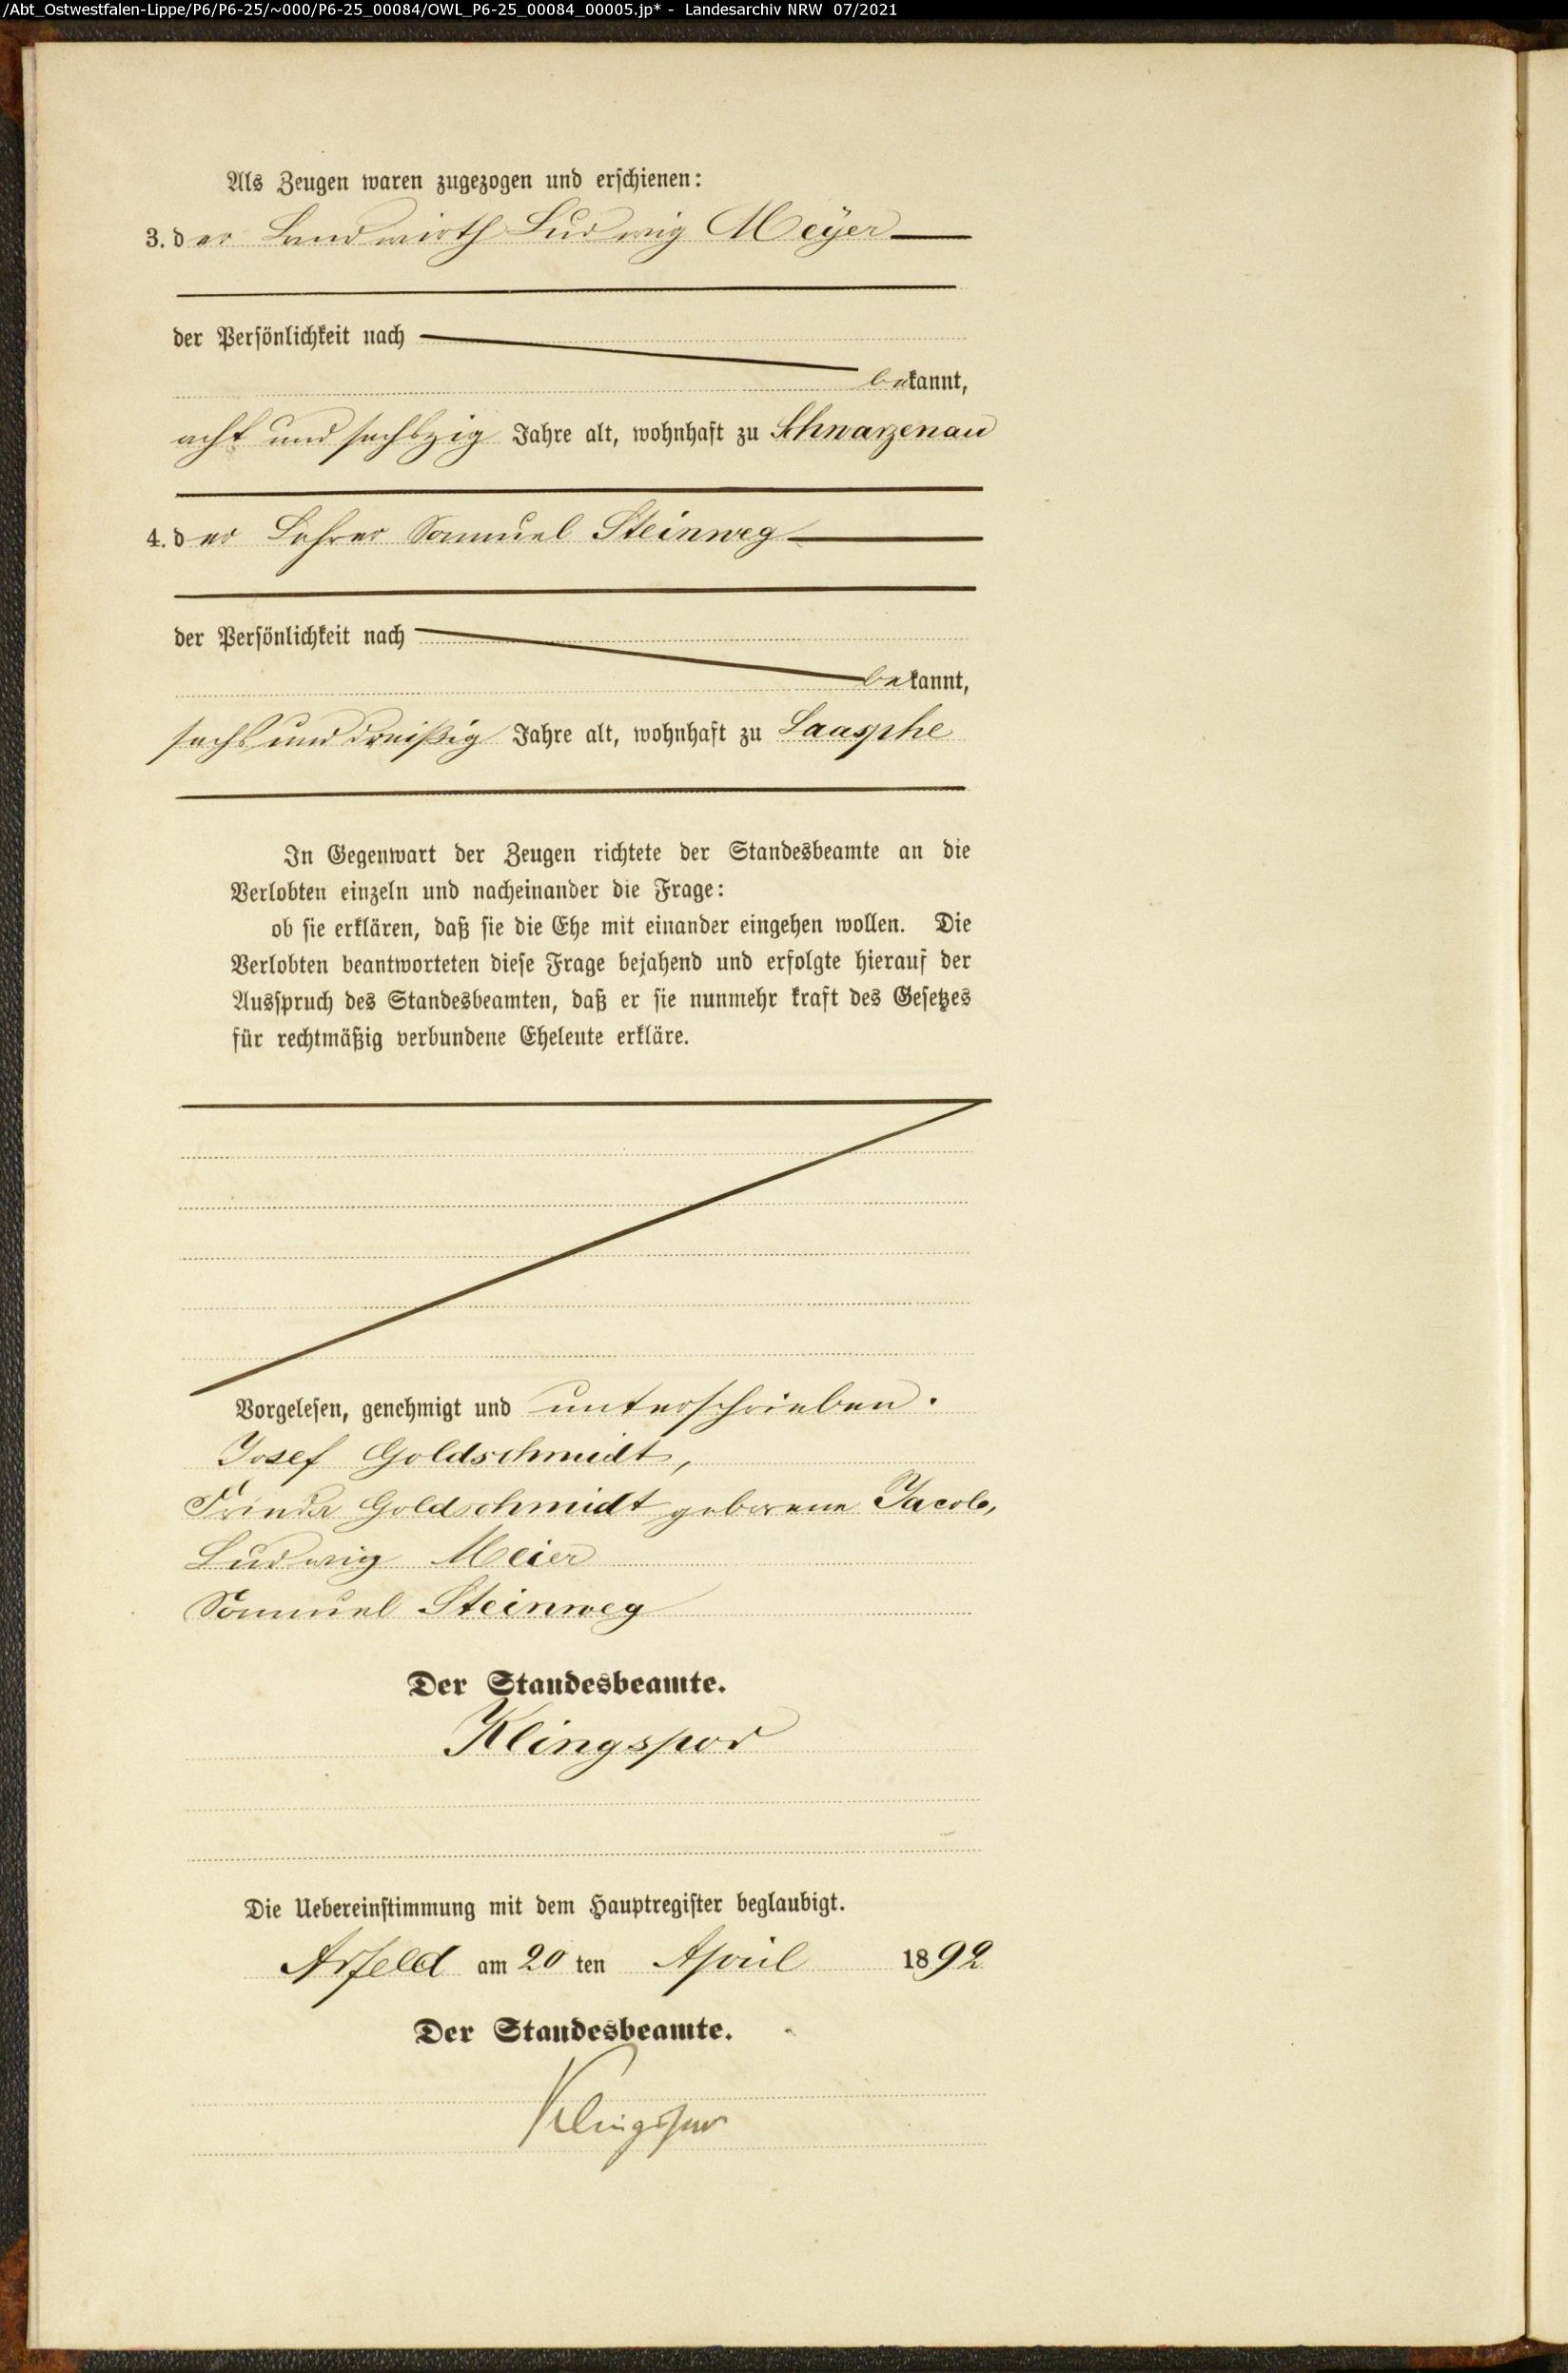 /Abt_Ostwestfalen-Lippe/P6/P6-25/~000/P6-25_00084/OWL_P6-25_00084_00005.jp* - Landesarchiv NRW 07/2021
Als Zeugen waren zugezogen und erschienen:
3. der Landwirth Ludwig Meÿer
der Persönlichkeit nach
bekannt,
acht und sechszig Jahre alt, wohnhaft zu Schwarzenau
4. der Lehrer Samuel Steinweg
der Persönlichkeit nach
bekannt,
sechs und dreißig Jahre alt, wohnhaft zu Laasphe
In Gegenwart der Zeugen richtete der Standesbeamte an die
Verlobten einzeln und nacheinander die Frage:
ob sie erklären, daß sie die Ehe mit einander eingehen wollen. Die
Verlobten beantworteten diese Frage bejahend und erfolgte hierauf der
Ausspruch des Standesbeamten, daß er sie nunmehr kraft des Gesetzes
für rechtmäßig verbundene Eheleute erkläre.
Vorgelesen, genehmigt und unterschrieben.
Josef Goldschmidt,
Frieda Goldschmidt geborene Jacob,
Ludwig Meier
Samuel Steinweg
Der Standesbeamte.
Klingspor
Die Uebereinstimmung mit dem Hauptregister beglaubigt.
Arfeld am 20 ten April 1892
Der Standesbeamte.
Klingspor